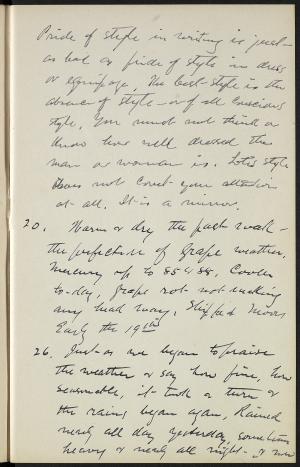 Pride of style in writing is just
as bad as pride of style in dress
or equipage. The best style is the
absence of style - or of all conscious
style. You must not think or
know how well dressed the
man or woman is. style
does not court your attention
at all. It is a mirror.
20. Warm or dry the past week -
the perfection of grape weather.
Mercury up to 85 & 88. Cooler
to-day. Grape rot not making
any head way. Shipped Moors
Early the 19th
26. Just as we began to praise
the weather or say how fine, how
seasonable, it took a turn or
the rains began again. Rained
nearly all day yesterday, sometimes
heavy or nearly all night - I now